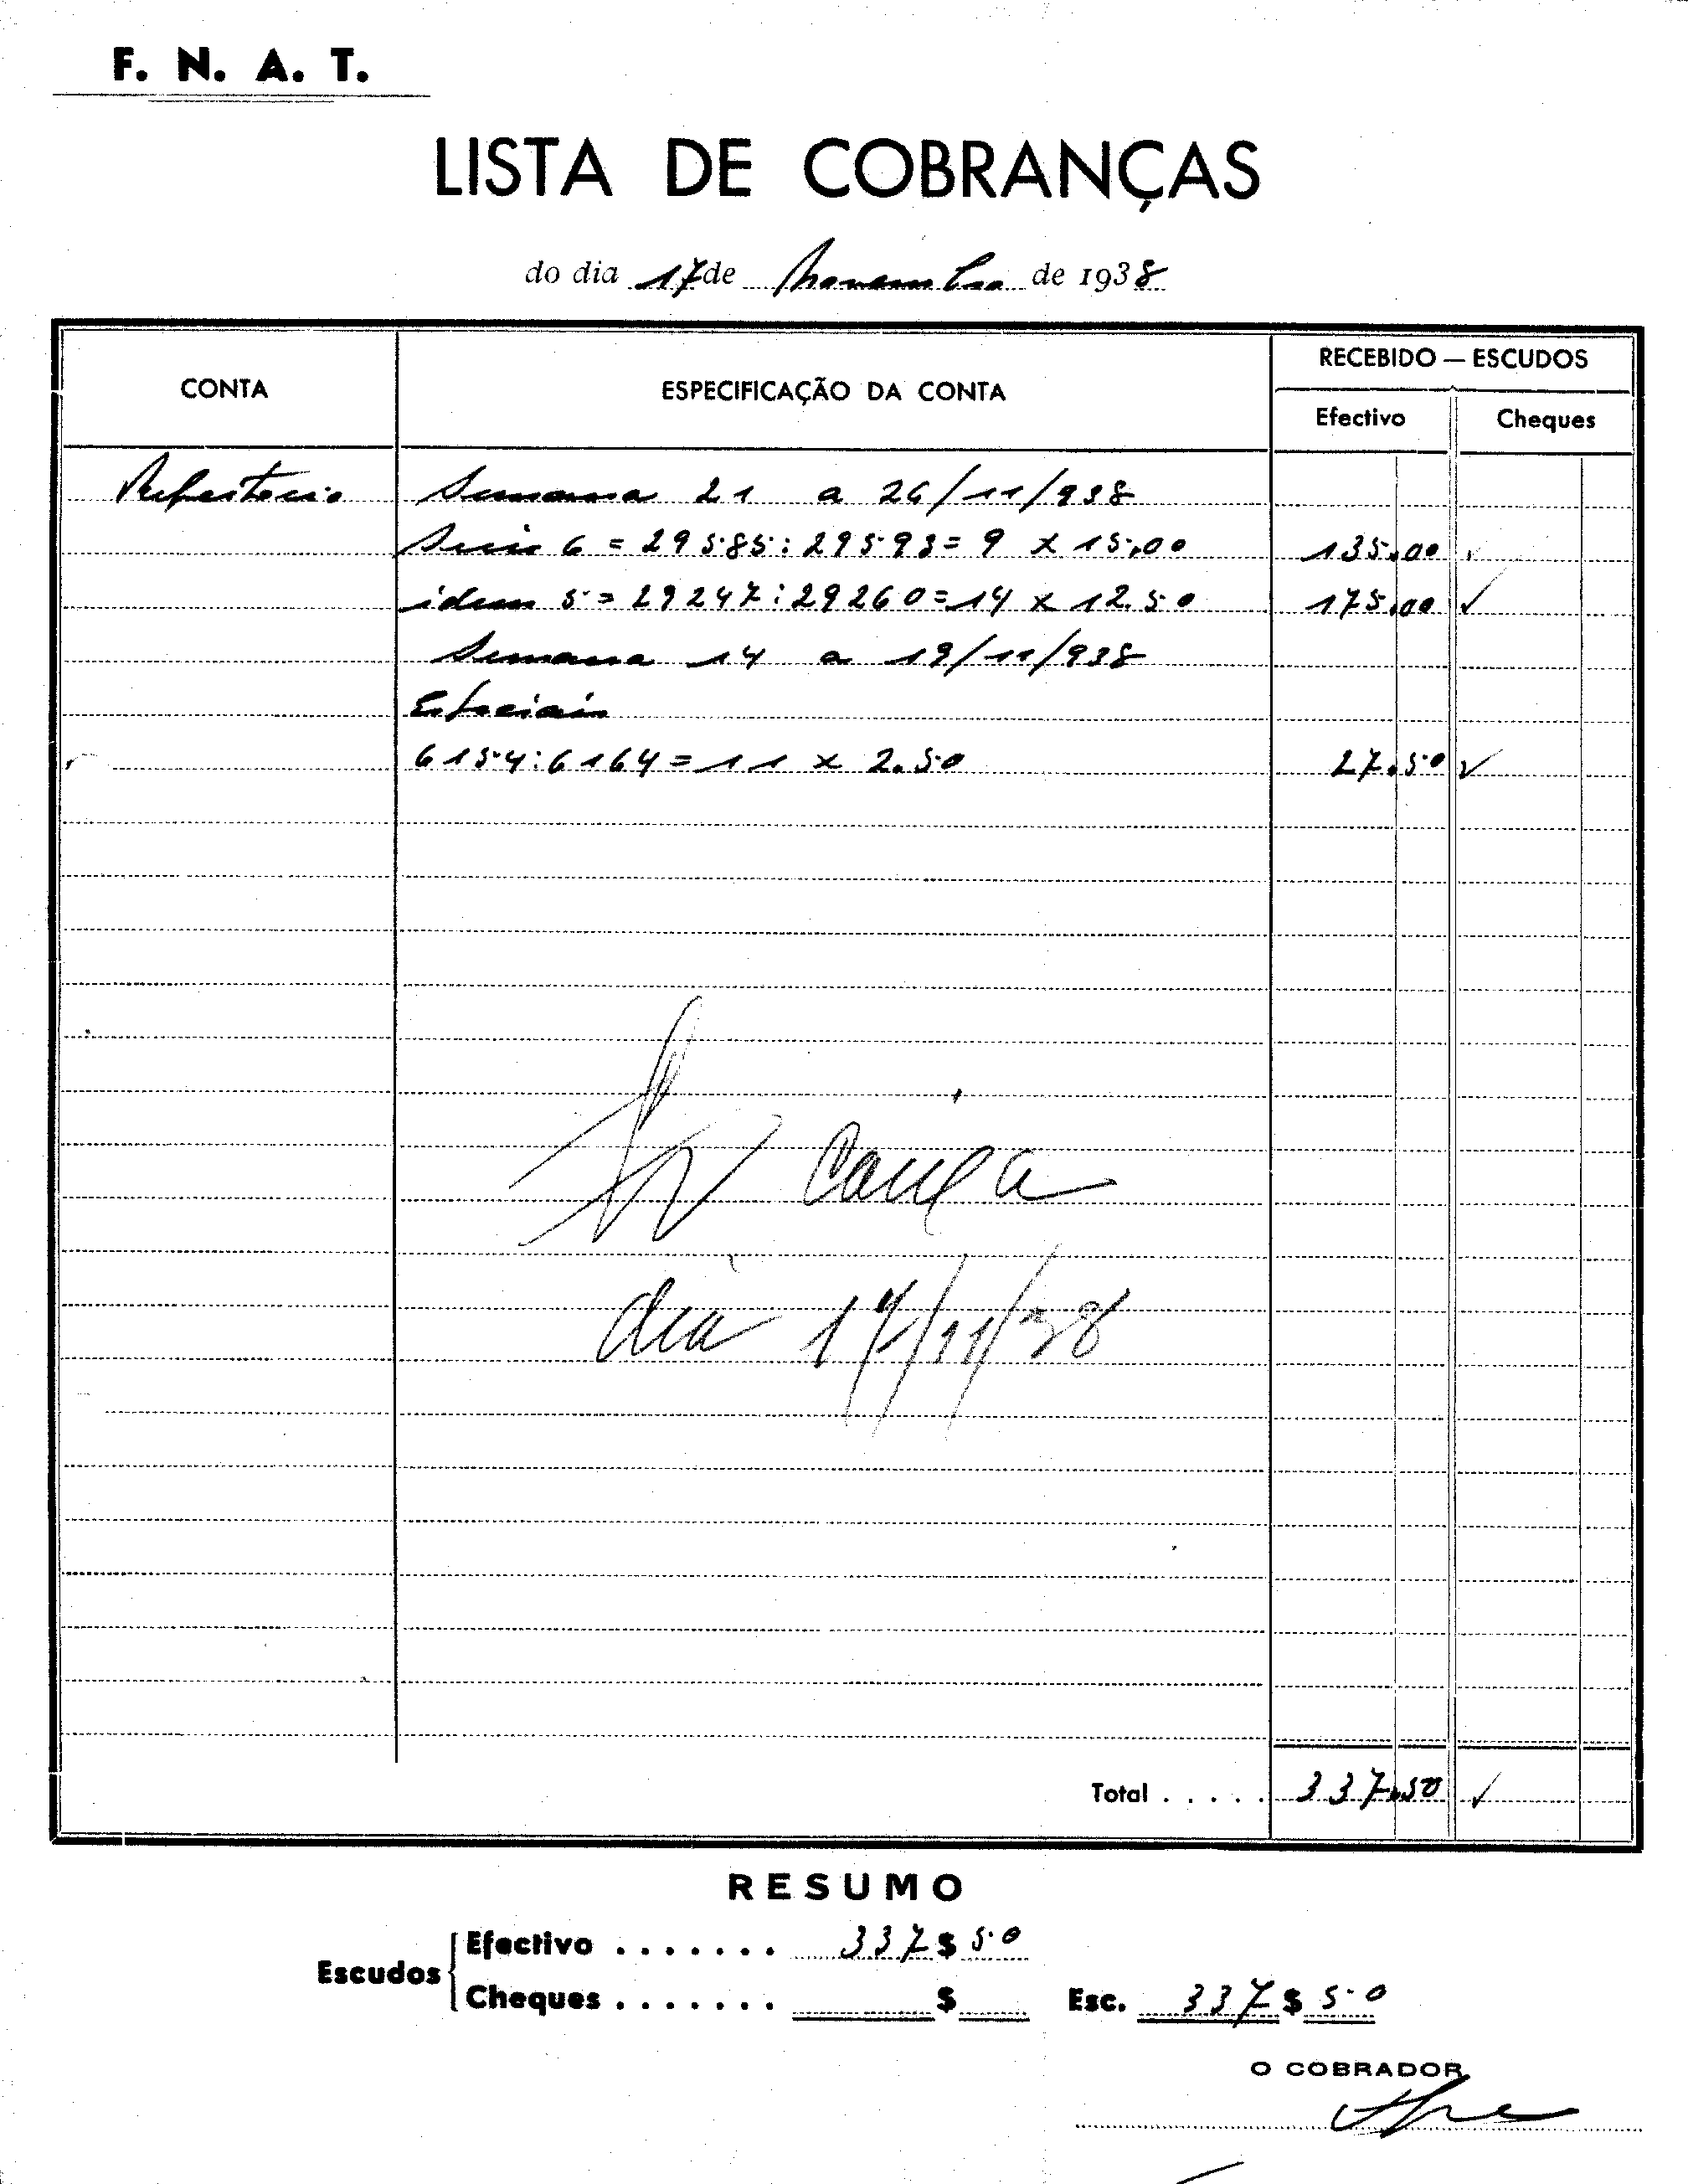 F. N. A. T.
LISTA DE COBRANÇAS
do dia 17 de Novembro de 1938
CONTA
ESPECIFICAÇÃO DA CONTA
RECEBIDO — ESCUDOS
Efectivo
Cheques
Refeitorio Semana 21 a 26/11/938
6 = 29585:29593 = 9 x 15,00 135,00
idem 5 = 29247:29260 = 14 x 12.50 175,00 ✓
Semana 14 a 19/11/938
Especiais
6154:6164 = 11 x 2.50 27.50 ✓
Caixa
dia 17/11/38
Total . . . . . 337.50 ✓
RESUMO
Escudos
Efectivo . . . . . . . 337 $ 50
Cheques . . . . . . . $
Esc. 337 $ 50
O COBRADOR